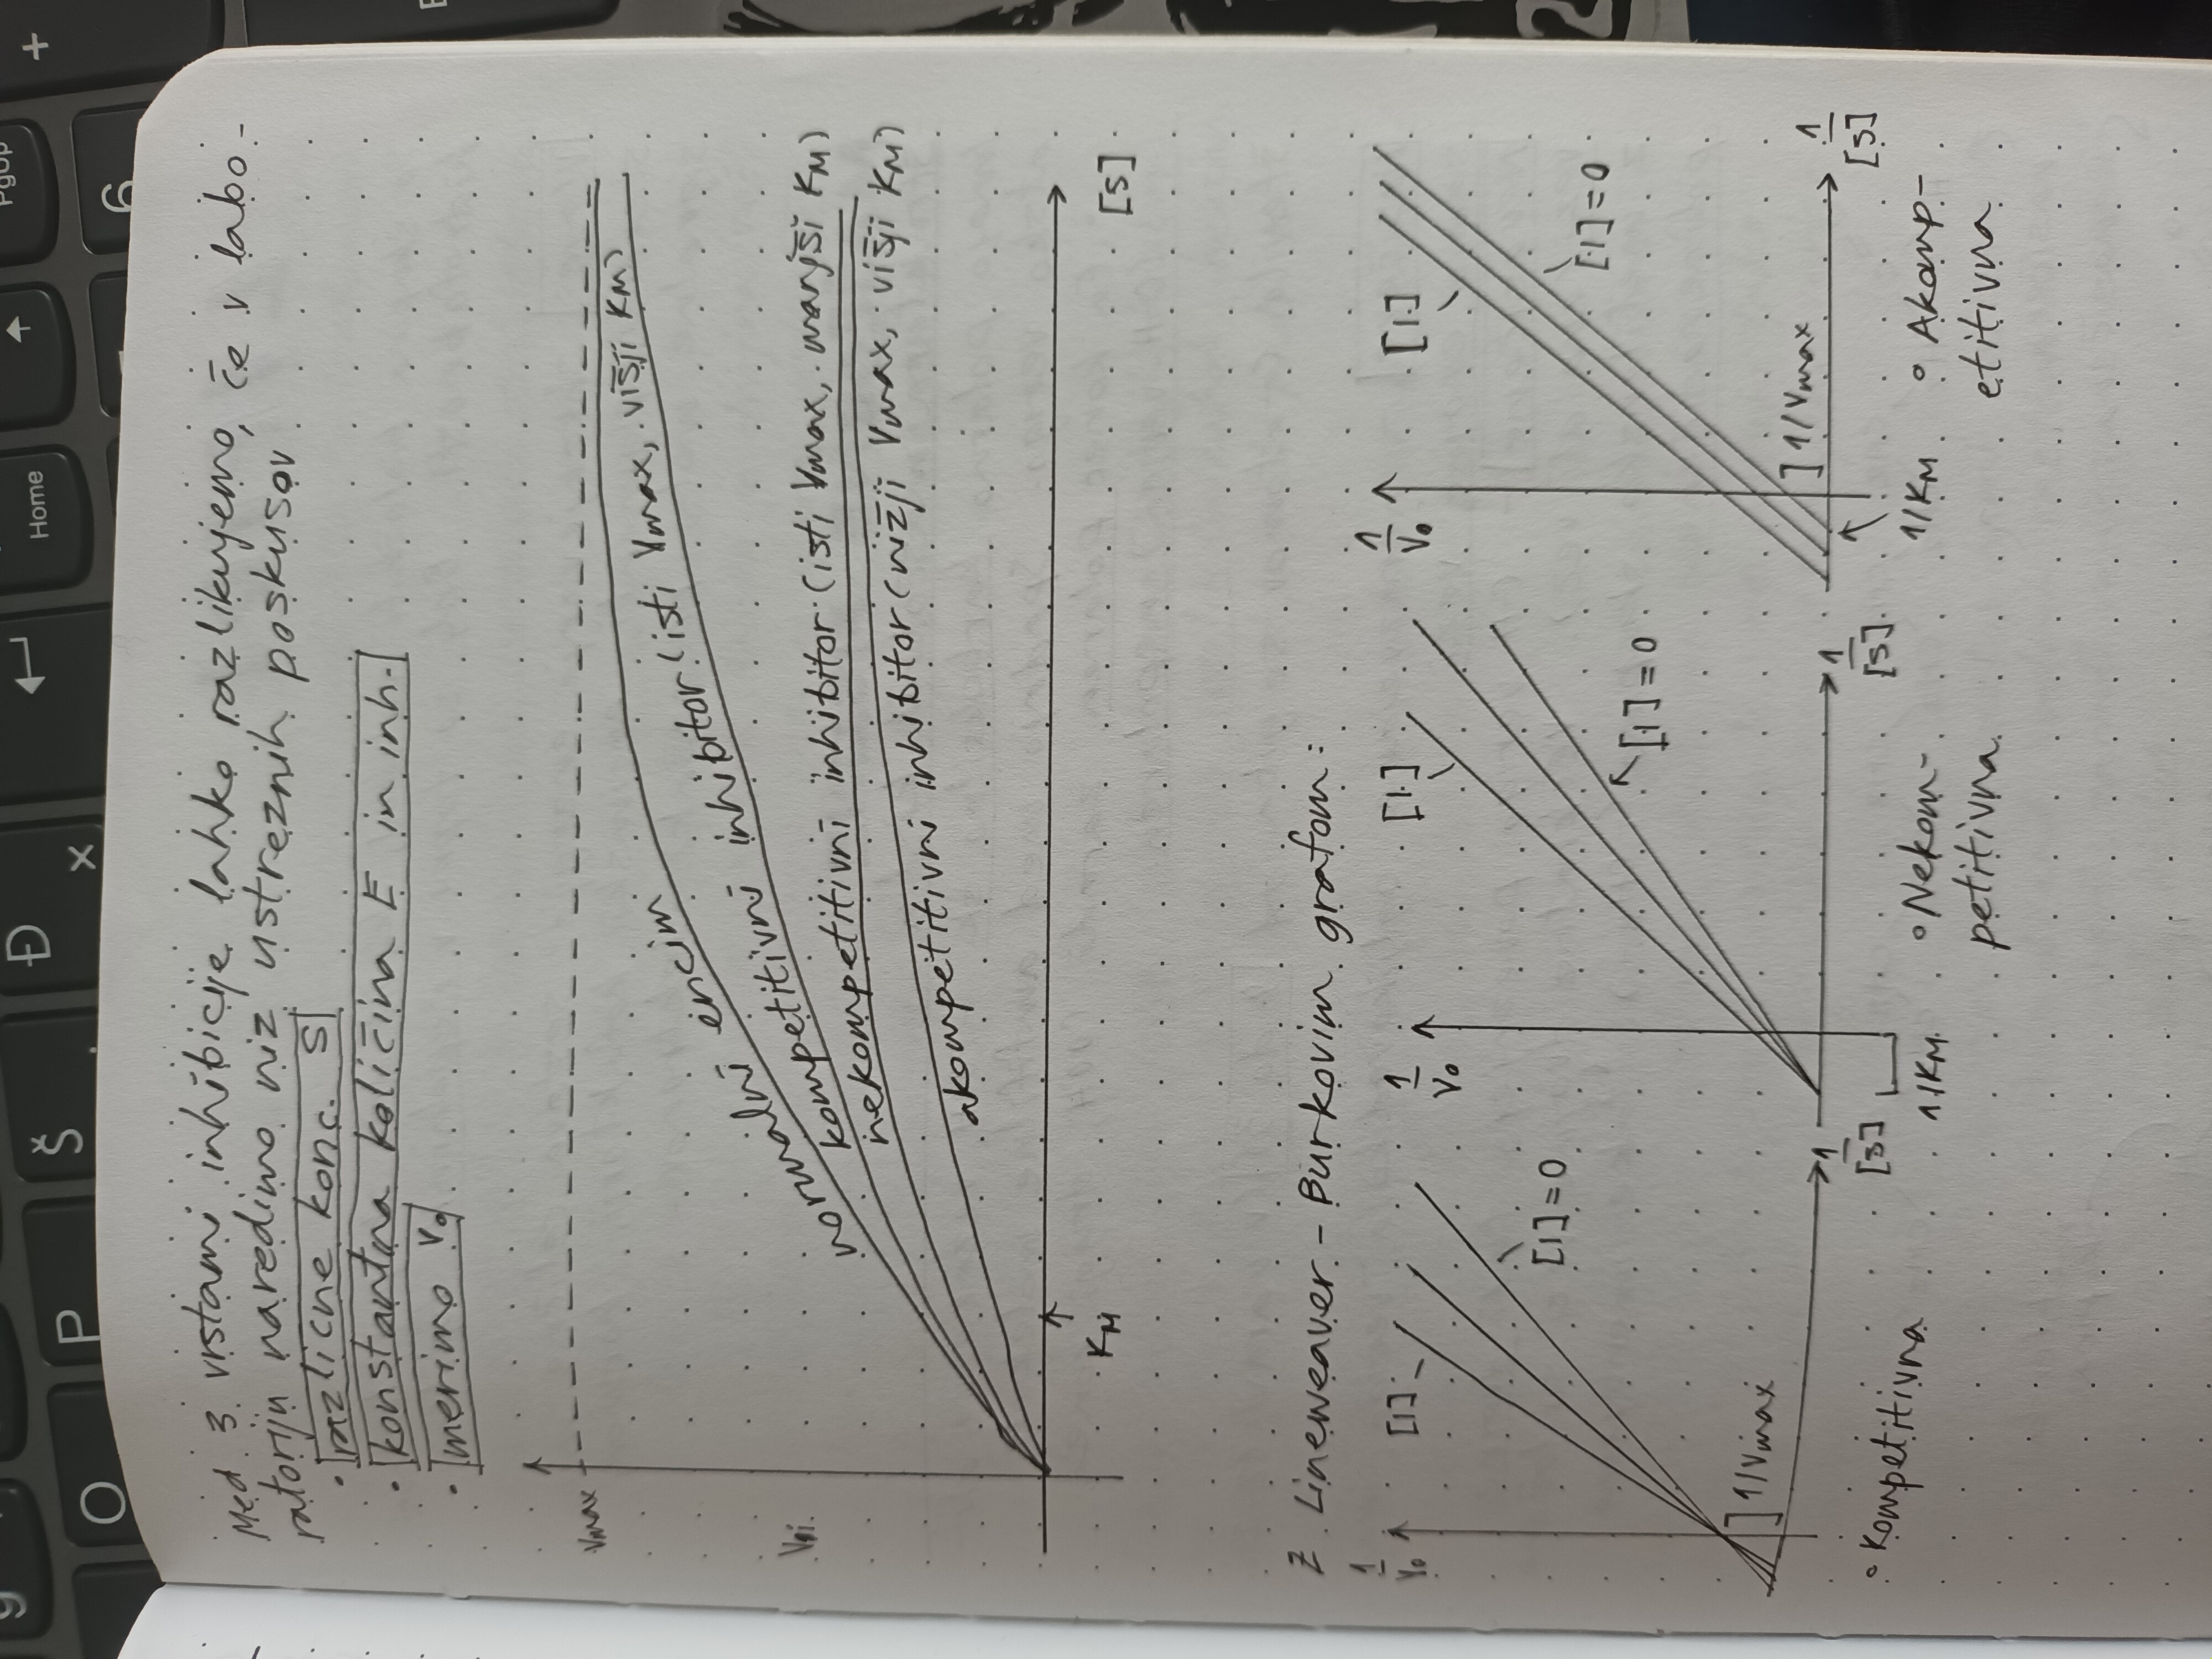 O
P
Š
Đ
x
Home
PgUp
+
6
Med 3 vrstami inhibicije lahko razlikujemo, če v labo-
ratoriju naredimo niz ustreznih poskusov
• različne konc. S
• konstantna količina E in inh.
• merimo v₀
Vmax
normalni encim
kompetitivni inhibitor (isti Vmax, višji KM)
nekompetitivni inhibitor (isti Vmax, manjši KM)
akompetitivni inhibitor (nižji Vmax, višji KM)
KM
[S]
Z Lineweaver - Burkovim grafom:
1/V₀
[I]
[I]=0
1/Vmax
1/[S]
• Kompetitivna
1/V₀
[I]
[I]=0
1/[S]
1/KM
• Nekom-
petitivna
1/V₀
[I]
[I]=0
1/Vmax
1/[S]
1/KM
• Akomp-
etitivna